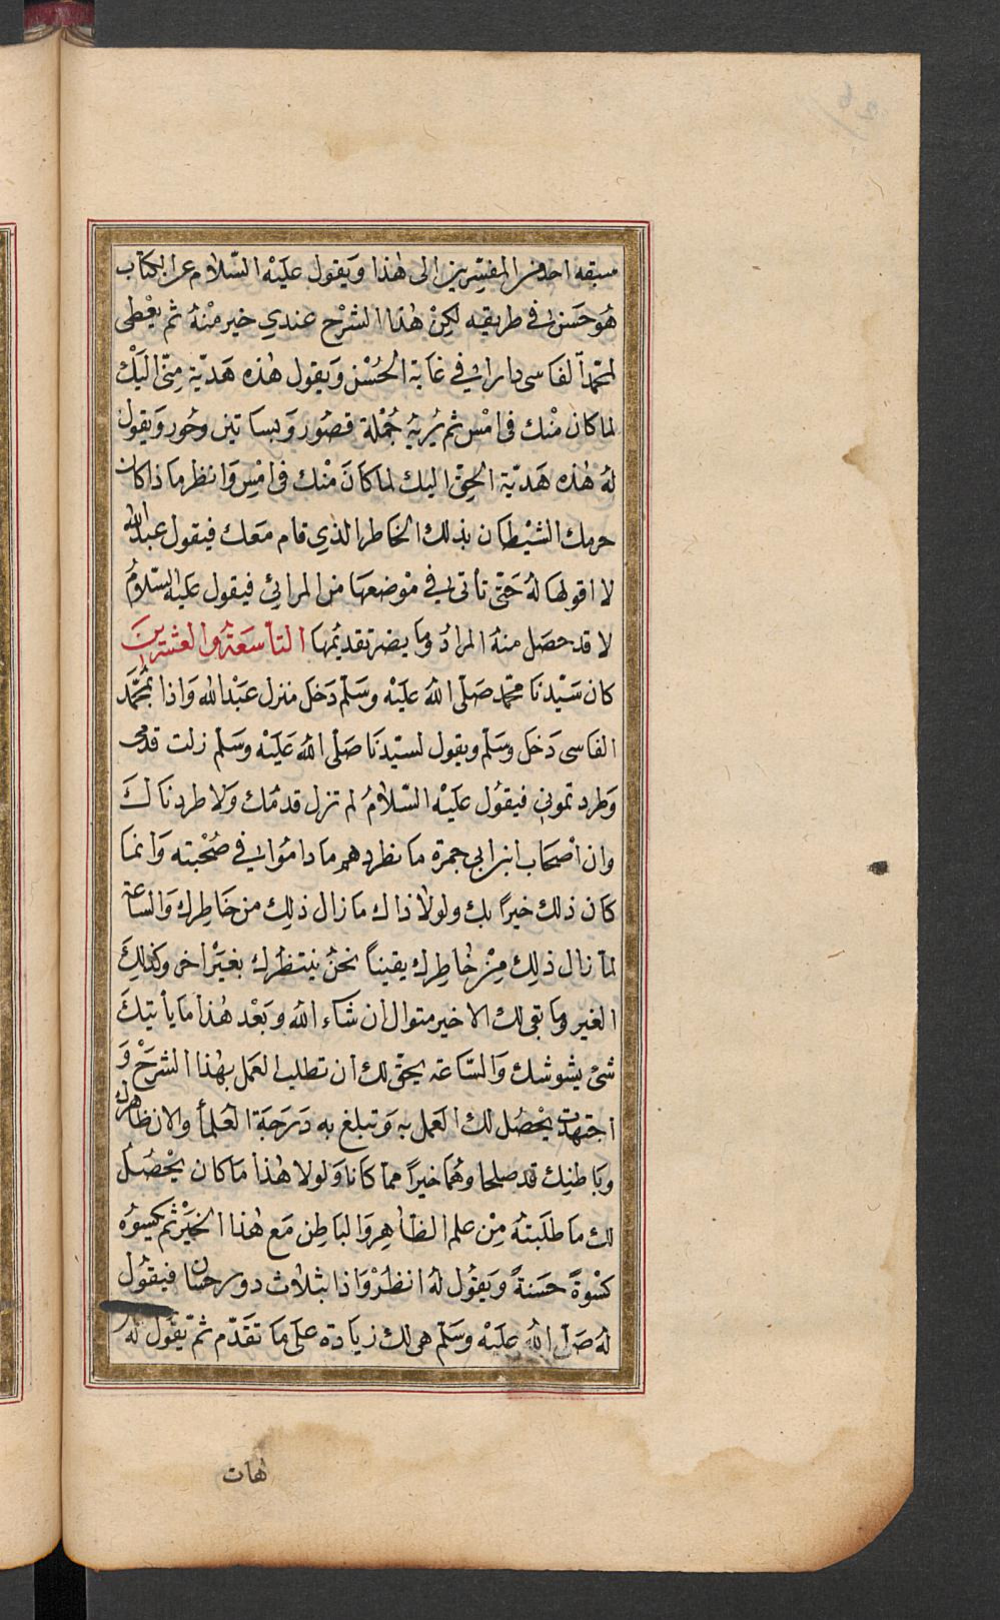 سبقه احد من المفسرين الى هٰذا ويقول عليْه السّلام عن الكتاب
هُو حَسَن فى طريقه لكِنْ هٰذا الشرْح عندي خير منْهُ ثم يعْطى
لمحمّد الفاسى دارا فى غاية الحُسْن ويقول هٰذه هَديّة مِنّى اليْك
لما كان منْك فى امْس ثم يُريْه جُمْلة قصُور وَبساتين وحُور ويقول
لهُ هٰذه هَديّة الحقّ اليك لما كانَ منْك فى امْسِ وَانظر ما ذا كان
حرمك الشيْطان بذلك الخاطر الذي قام معَك فيقول عبد الله
لا اقولها لهُ حَتّى تأتى فى موْضعهَا من المرائى فيقول عليه السّلامُ
لا قد حصَل منهُ المرادُ وما يضر تقديمُها التاسَعَةُ والعشرينَ
كان سَيّدنَا محمّد صَلّى اللهُ عليْه وسَلّم دَخل منزل عَبْد الله وَاذا بمُحَمَّد
الفاسى دَخل وسَلّم ويقول لسَيّدنَا صَلّى اللهُ عَليْه وَسَلّم زلت قدمى
وَطردتمونى فيقُول عليْه السّلامُ لم تزل قدمُك وَلا طردناكَ
وان اصْحَاب ابن ابى جمرة ما نطردهم ما دامُوا فى صُحْبته وَانما
كان ذلك خيرًا بك ولولا ذاك ما زال ذلِك من خَاطِرك وَالساعة
لما زال ذلِك مِنْ خاطِرك يقيناً نحنُ ننتظرك بغيْر اخر وكذلِكَ
الغير وما بقى لك الا خير متوال ان شاء الله وبَعْد هٰذا ما يأتيكَ
شئ يشوشك وَالسّاعة يحق لك ان تطلب العَمل بهٰذا الشرَحْ وَ
اجتهدت يحْصُل لك العَمل به وَتبلغ به دَرَجَة العُلمأ والان ظاهرك
وبَاطنِك قد صلحا وهُما خيرًا مما كانا وَلولا هٰذا ما كان يحْصُل
لك ما طلَبتهُ مِنْ علم الظاهِر وَالبَاطِن مَع هٰذا الخيْر ثم يكسُوه
كسْوةً حسَنةً ويَقُول لهُ انظرْ وَاذا بثلاث دور حسان فيقُول
لهُ صَلّى اللهُ عليْه وسَلّم هى لك زيادة على ما تقدّم ثمّ يقول له
هٰات